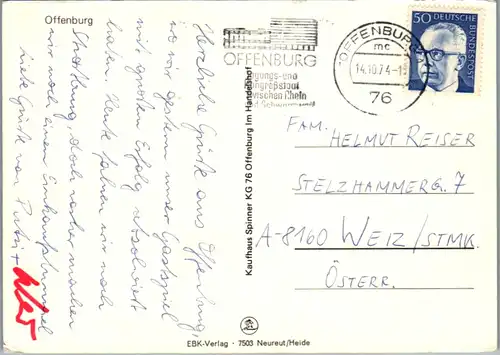 Offenburg
Herzliche Grüße aus Offenburg,
wo wir gestern unser Gastspiel
mit großem Erfolg absolviert
haben. Heute fahren wir nach
Straßburg, doch vorher machen
wir noch einen Einkaufsbummel
liebe Grüße von
OFFENBURG
Tagungs-und
Kongreßstadt
zwischen Rhein
und Schwarzwald
OFFENBURG
mc
14.10.74-1
76
50 DEUTSCHE BUNDESPOST
FAM. HELMUT REISER
STELZHAMMERG. 7
A-8160 WEIZ/STMK.
ÖSTERR.
Kaufhaus Spinner KG 76 Offenburg Im Handelshof
EBK-Verlag · 7503 Neureut/Heide